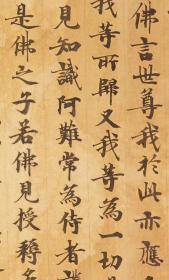 佛言世尊我於此亦應
我等所歸又我等為一切
見知識阿難常為侍者護
是佛之子若佛見授稱